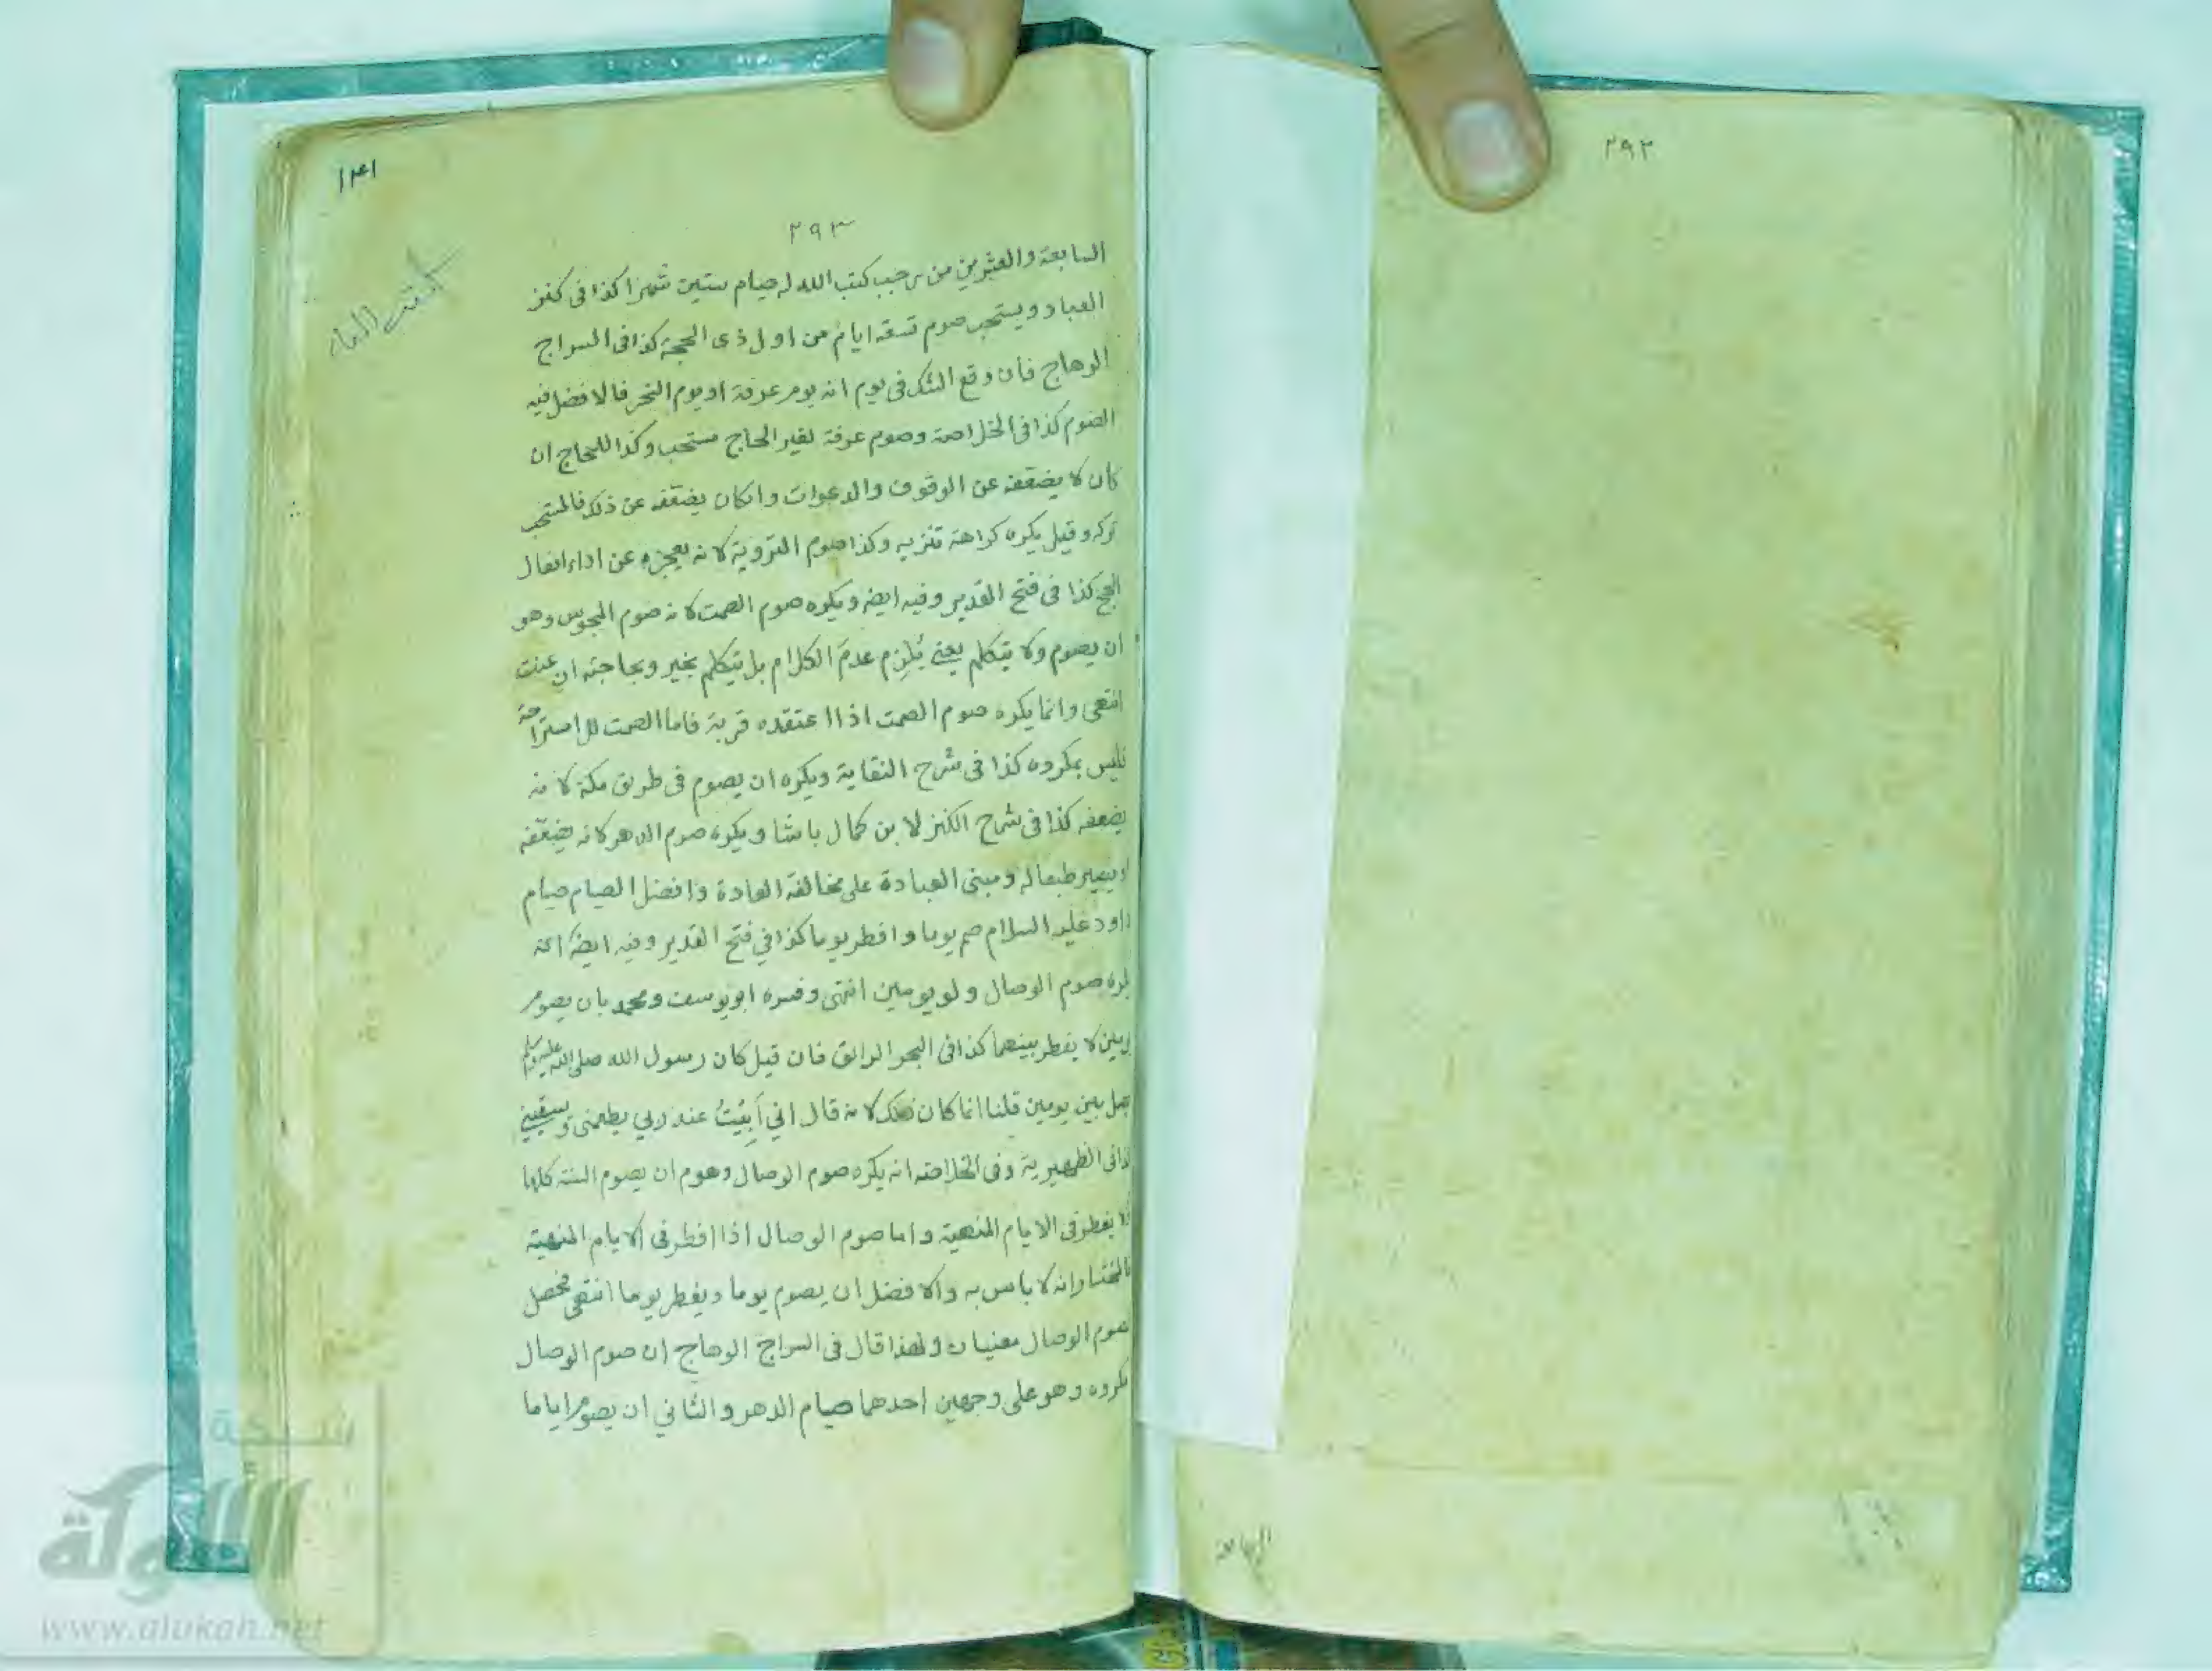 ٢٩٢
السابعة
١٣١
٢٩٣
السابعة والعشرين من رجب كتب الله له صيام ستين شهرا كذا فى كنز
العباد ويستحب صوم تسعة ايام من اول ذى الحجة كذا فى السراج
الوهاج فان وقع الشك فى يوم انه يوم عرفة او يوم النحر فالافضل فيه
الصوم كذا فى الخلاصة وصوم عرفة لغير الحاج مستحب وكذا للحاج ان
كان لا يضعفه عن الوقوف والدعوات وان كان يضعفه عن ذلك فالمستحب
تركه وقيل يكره كراهة تنزيه وكذا صوم التروية لانه يعجزه عن اداء افعال
الحج كذا فى فتح القدير وفيه ايضه ويكره صوم الصمت لانه صوم المجوس وهو
ان يصوم ولا يتكلم يعنى يُلزِم عدمَ الكلام بل يتكلم بخير وبحاجته ان عنت
انتهى وانما يكره صوم الصمت اذا اعتقده قربة فاما الصمت للاستراحة
فليس بمكروه كذا فى شرح النقاية ويكره ان يصوم فى طريق مكة لانه
يضعفه كذا فى شرح الكنز لابن كمال باشا ويكره صوم الدهر لانه يضعّفه
او يصير طبعا له ومبنى العبادة على مخالفة العادة وافضل الصيام صيام
داود عليه السلام صم يوما وافطر يوما كذا في فتح القدير وفيه ايضه انه
يكره صوم الوصال ولو يومين انتهى وفسره ابو يوسف ومحمد بان يصوم
يومين لا يفطر بينهما كذا فى البحر الرائق فان قيل كان رسول الله صلى الله عليه وسلم
يصل بين يومين قلنا انما كان كذلك لانه قال اني أَبِيْتُ عند ربي يطعمنى ويسقينى
كذا فى الظهيرية وفى الخلاصه انه يكره صوم الوصال وهو ان يصوم السنة كلها
ولا يفطر فى الايام المنهية واما صوم الوصال اذا افطر فى الايام المنهية
فالمختار انه لا باس به والافضل ان يصوم يوما ويفطر يوما انتهى فحصل
لصوم الوصال معنيان ولهذا قال فى السراج الوهاج ان صوم الوصال
مكروه وهو على وجهين احدهما صيام الدهر والثاني ان يصوم اياما
شبكة
الألوكة
www.alukah.net